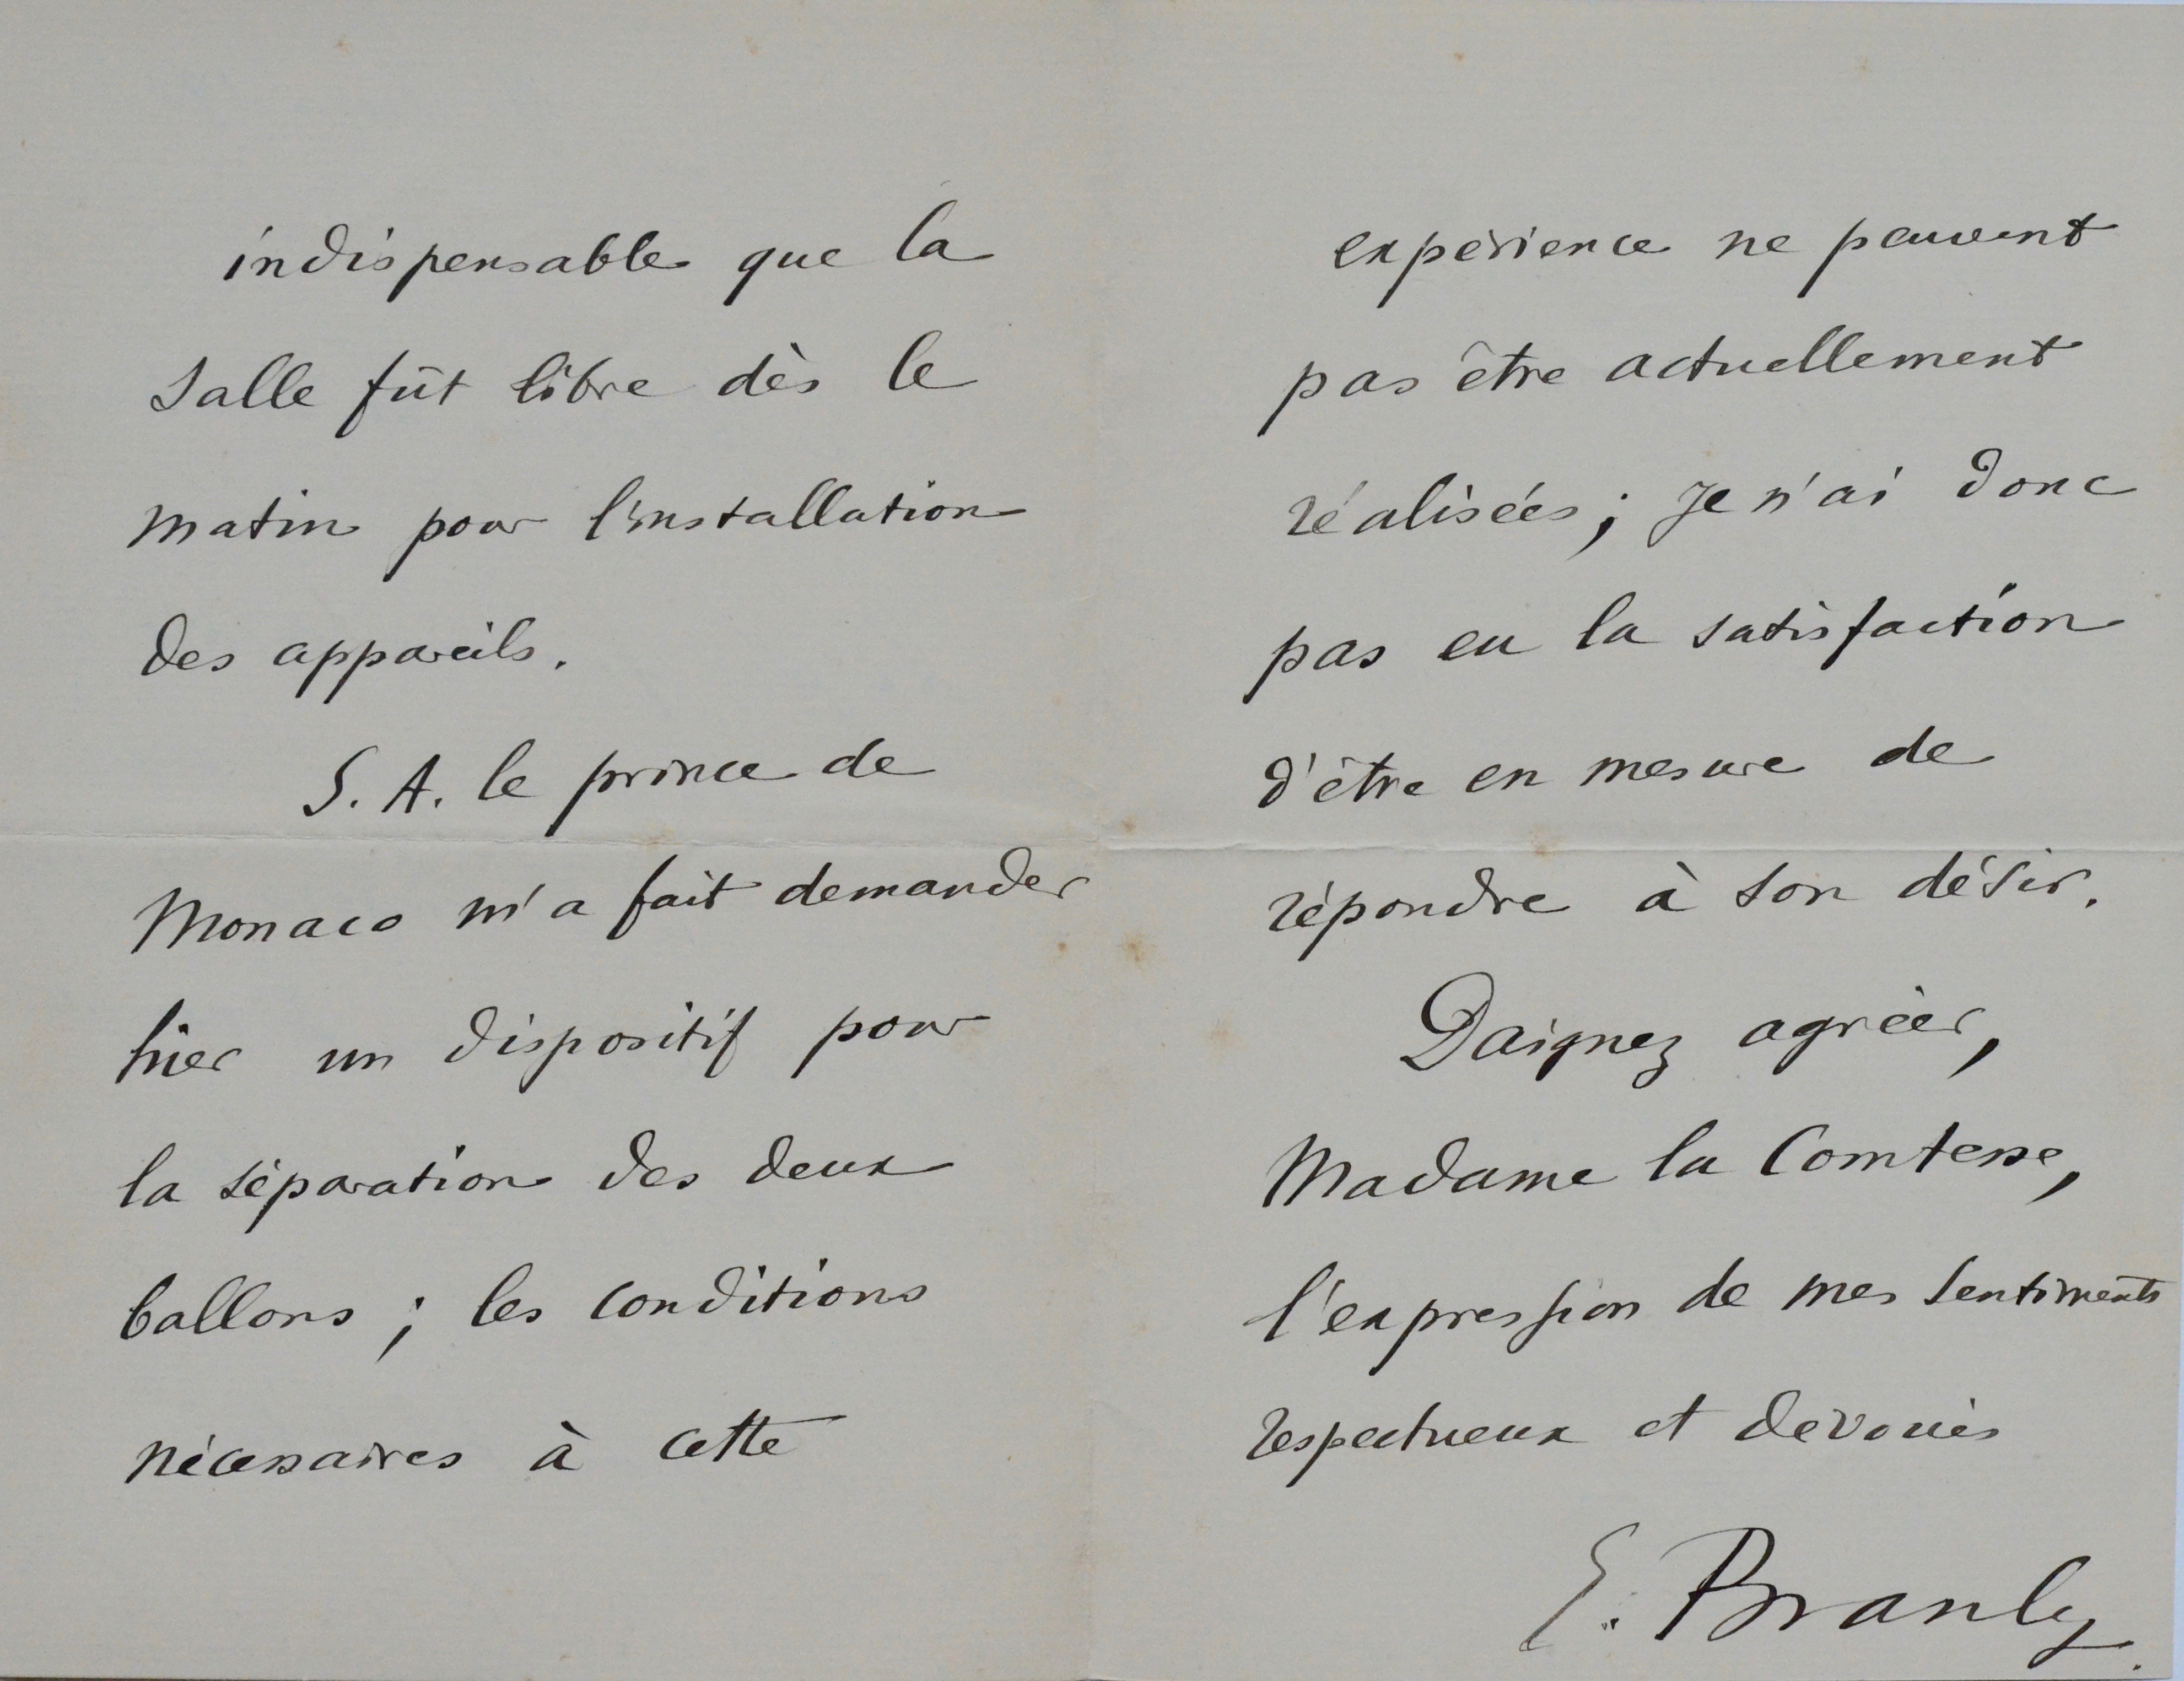 indispensable que la
salle fût libre dès le
matin pour l'installation
des appareils.
S. A. le prince de
Monaco m'a fait demander
hier un dispositif pour
la séparation des deux
ballons ; les conditions
nécessaires à cette
expérience ne peuvent
pas être actuellement
réalisées ; je n'ai donc
pas eu la satisfaction
d'être en mesure de
répondre à son désir.
Daignez agréer,
Madame la Comtesse,
l'expression de mes sentiments
respectueux et dévoués
E. Branly.